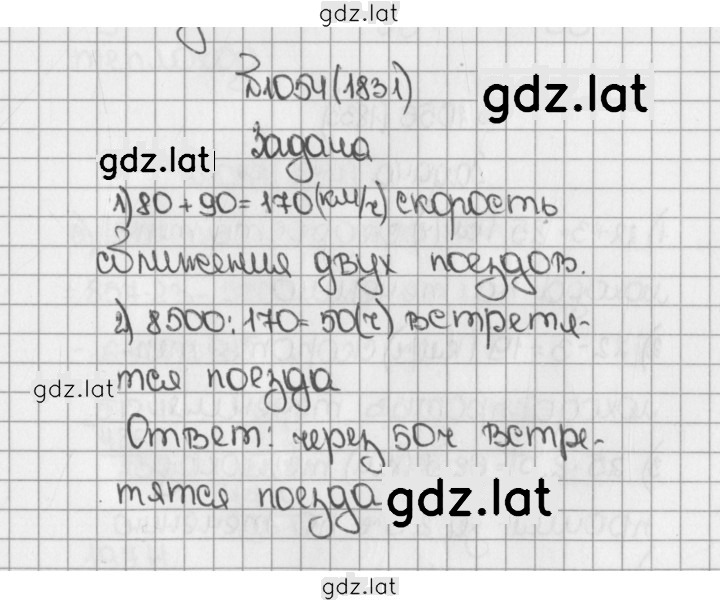 gdz.lat
№1054(1831)
gdz.lat
Задача
gdz.lat
1) 80 + 90 = 170 (км/ч) скорость
сближения двух поездов.
2) 8500 : 170 = 50 (ч) встретя-
тся поезда
gdz.lat
Ответ: через 50 ч встре-
тятся поезда
gdz.lat
gdz.lat